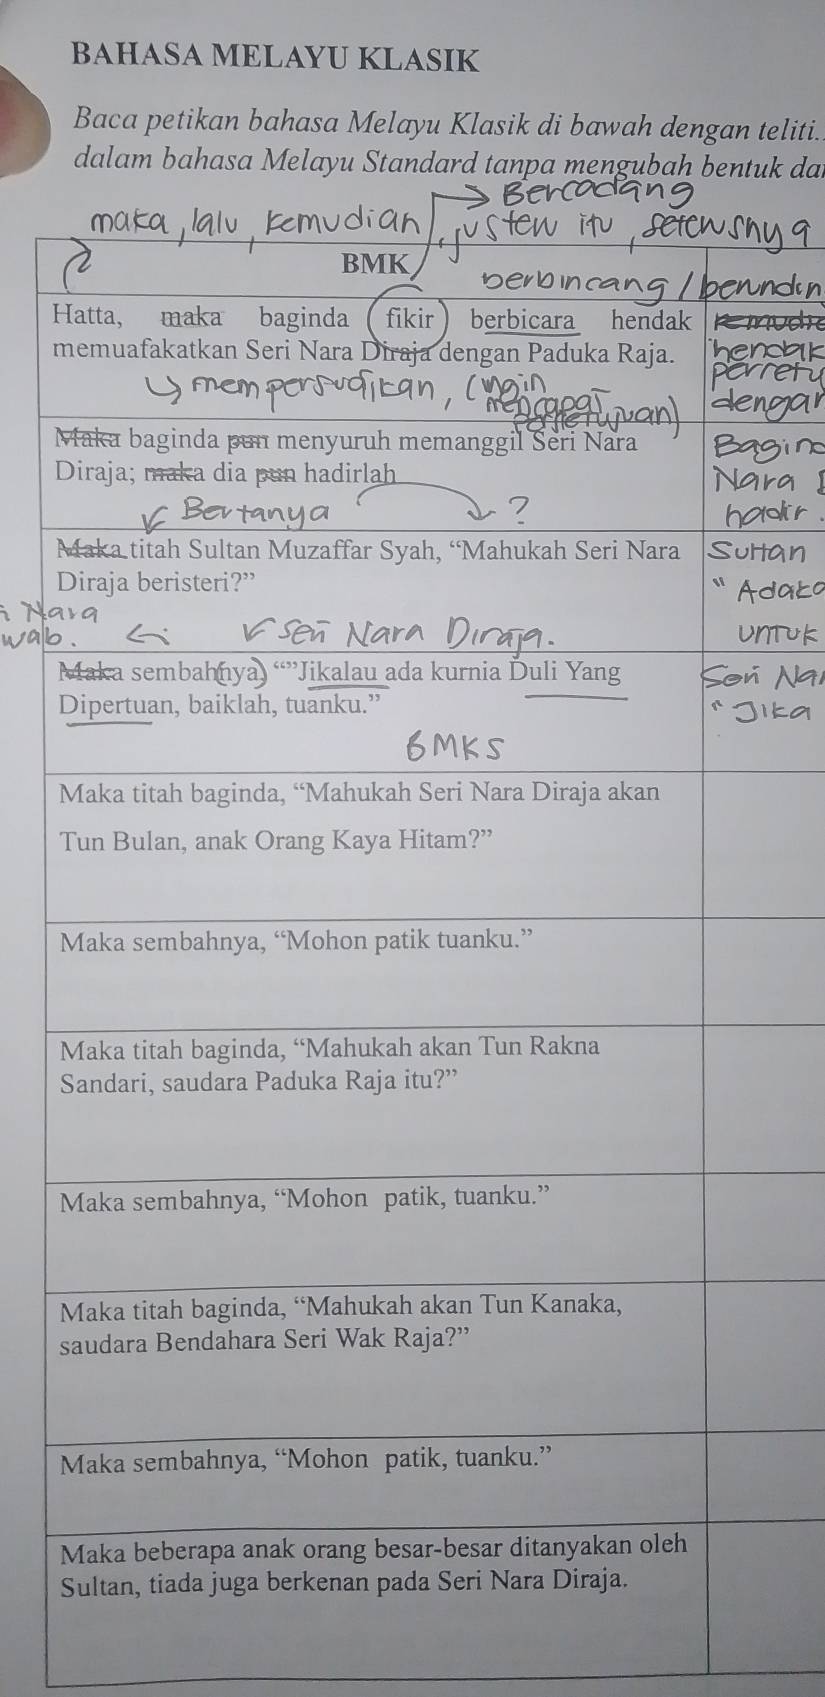 BAHASA MELAYU KLASIK
Baca petikan bahasa Melayu Klasik di bawah dengan teliti.
dalam bahasa Melayu Standard tanpa mengubah bentuk da
Bercadang
maka, lalu, kemudian,
BMK
berbincang /
Hatta, maka baginda fikir berbicara hendak
memuafakatkan Seri Nara Diraja dengan Paduka Raja.
hendak
mempersudikan, (ingin
mencapai
dengan
Maka baginda pun menyuruh memanggil Seri Nara
Bagin
Diraja; maka dia pun hadirlah
Nara
Bertanya ?
hadir.
Maka titah Sultan Muzaffar Syah, “Mahukah Seri Nara
Sultan
Diraja beristeri?”
"Adak
Nara
wab. Seri Nara Diraja.
untuk
Maka sembah(nya) “”Jikalau ada kurnia Duli Yang
Seri Na
Dipertuan, baiklah, tuanku.”
"Jika
BMKS
Maka titah baginda, “Mahukah Seri Nara Diraja akan
Tun Bulan, anak Orang Kaya Hitam?”
Maka sembahnya, “Mohon patik tuanku.”
Maka titah baginda, “Mahukah akan Tun Rakna
Sandari, saudara Paduka Raja itu?”
Maka sembahnya, “Mohon patik, tuanku.”
Maka titah baginda, “Mahukah akan Tun Kanaka,
saudara Bendahara Seri Wak Raja?”
Maka sembahnya, “Mohon patik, tuanku.”
Maka beberapa anak orang besar-besar ditanyakan oleh
Sultan, tiada juga berkenan pada Seri Nara Diraja.